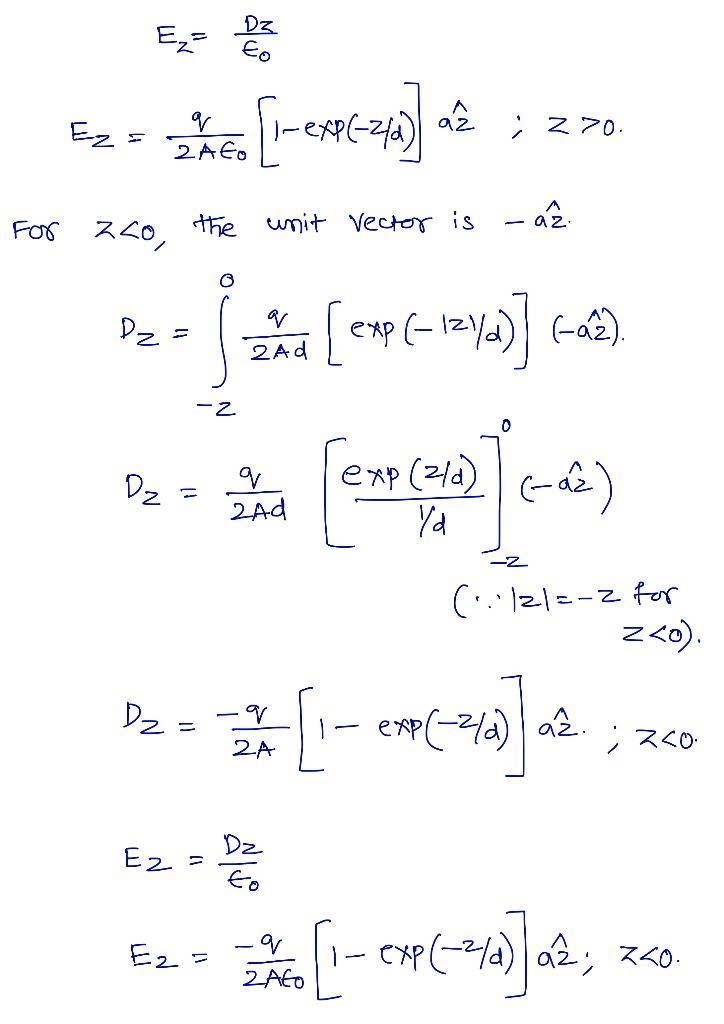 E_z = Dz/ε0
E_z = q/2Aε0 [1-exp(-z/d)] âz ; z>0.
For z<0, the unit vector is -âz.
D_z = ∫_{-z}^{0} q/2Ad [exp(-|z|/d)] (-âz).
D_z = q/2Ad [exp(z/d) / 1/d]_{-z}^{0} (-âz)
(∵ |z|=-z for
z<0).
D_z = -q/2A [1- exp(-z/d)] âz. ; z<0.
E_z = Dz/ε0
E_z = -q/2Aε0 [1- exp(-z/d)] âz; z<0.